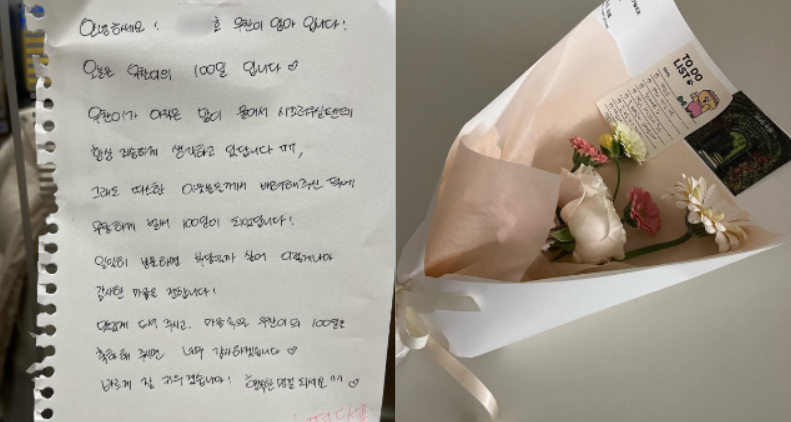 안녕하세요! 호 우찬이 엄마 입니다!
오늘은 우찬이의 100일 입니다♡
우찬이가 아직은 많이 울어서 시끄러우실텐데
항상 죄송하게 생각하고 있답니다 ㅠㅠ,
그래도 따스한 이웃분들께서 배려해주신 덕에
무탈하게 벌써 100일이 되었답니다!
일일히 방문하면 부담일까 싶어 이렇게나마
감사한 마음을 전합니다!
맛있게 드셔 주시고, 마음속으로 우찬이의 100일을
축하해 주시면 너무 감사하겠습니다♡
바르게 잘 키우겠습니다! 행복한 명절 되세요^^♡
TO DO
LIST